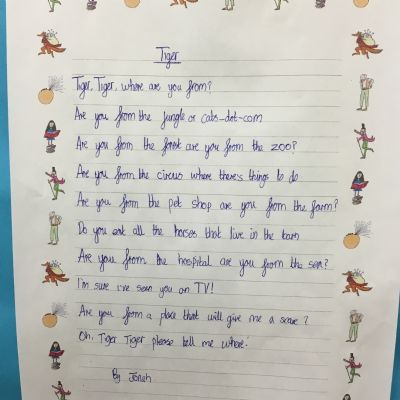 Tiger
Tiger, Tiger, where are you from?
Are you from the jungle or cats-dot-com
Are you from the forest are you from the zoo?
Are you from the circus where there's things to do
Are you from the pet shop are you from the farm?
Do you eat all the horses that live in the barn
Are you from the hospital are you from the sea?
I'm sure i've seen you on TV!
Are you from a place that will give me a scare?
Oh, Tiger Tiger please tell me where.
By Jonah